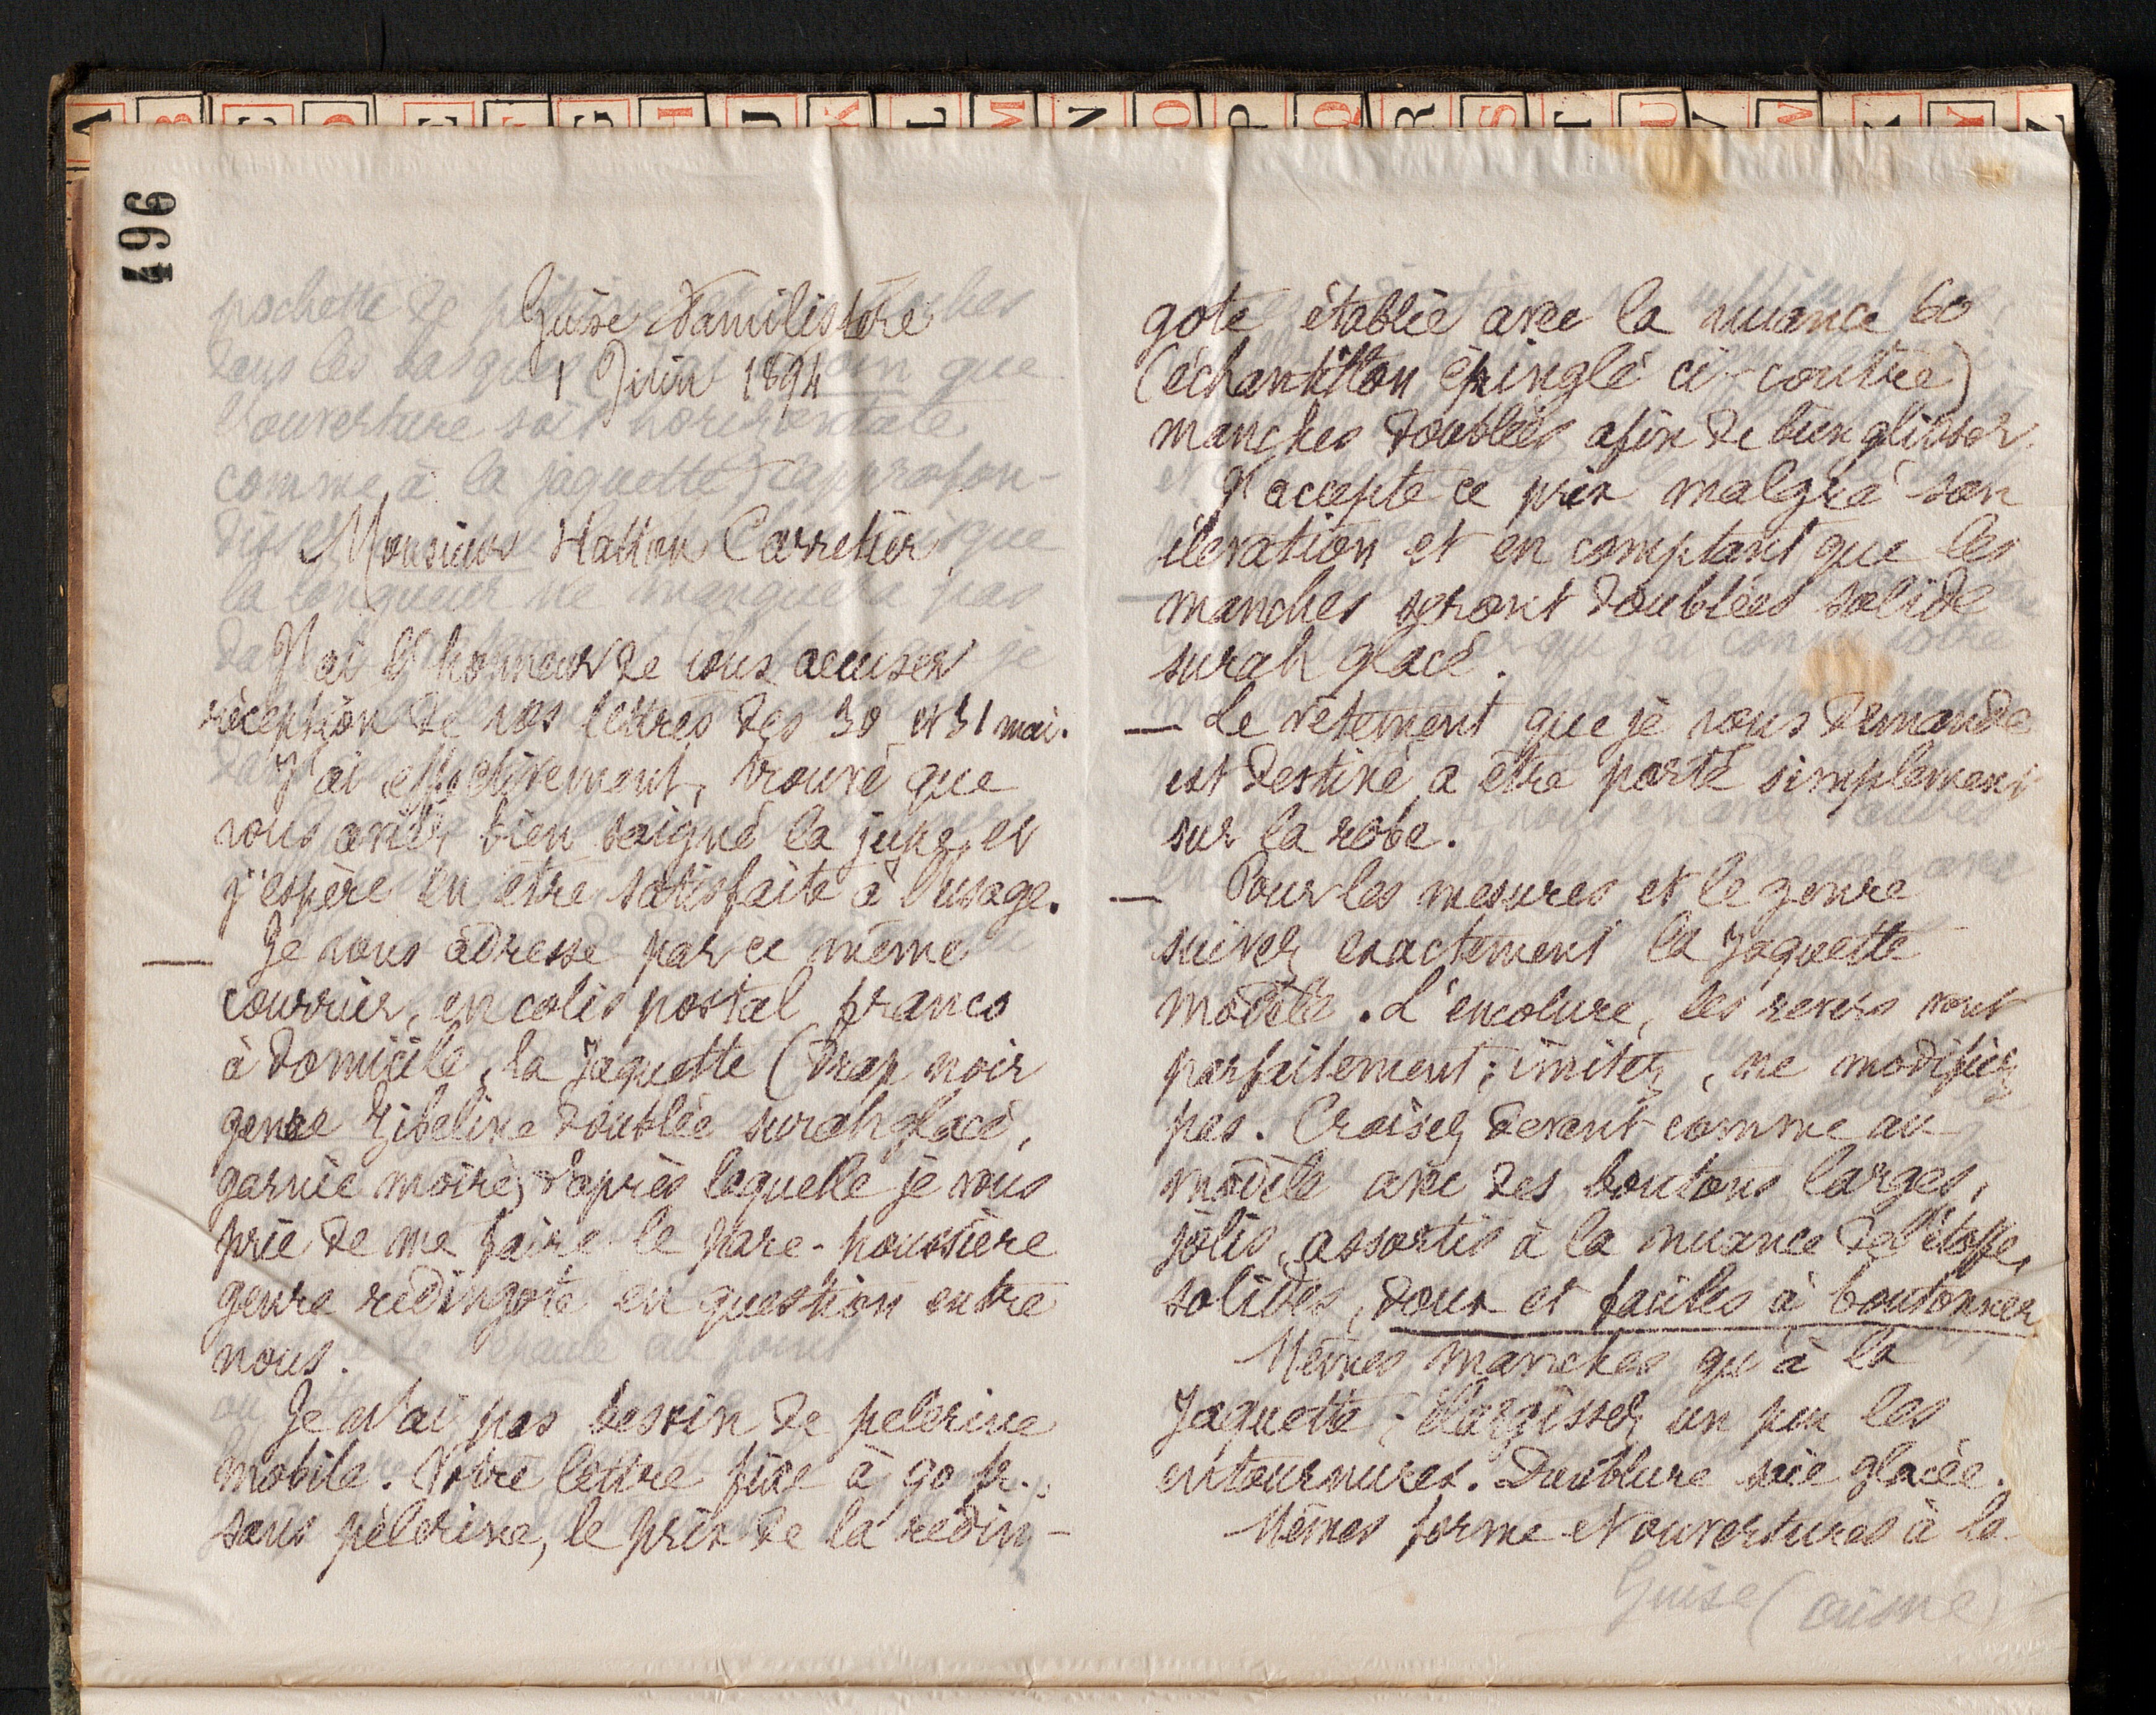 496
Guise Familistère
1 Juin 1894
Monsieur Hatton Carretier,
J'ai l'honneur de vous accuser
réception de vos lettres des 30 et 31 mai.
J'ai effectivement, trouvé que
vous aviez bien soigné la jupe et
j'espère en être satisfaite à l'usage.
— Je vous adresse par ce même
courrier, en colis postal franco
à domicile, la Jaquette (drap noir
genre Zibeline doublée surah glacé,
garnie moire) d'après laquelle je vous
prie de me faire le pare-poussière
genre redingote en question entre
nous.
Je n'ai pas besoin de pelerine
mobile. Votre lettre fixe à 90 fr.
sans pèlerine, le prix de la redin-
gote établie avec la nuance 60
(échantillon épinglé ci-contre)
manches doublées afin de bien glisser.
J'accepte ce prix malgré son
élevation et en comptant que les
manches seront doublées solide
surah glacé.
— Le vêtement que je vous demande
est destiné a être porté simplement
sur la robe.
— Pour les mesures et le genre
suivez exactement la Jaquette
modèle. L'encolure, les revers vont
parfaitement; imitez, ne modifiez
pas. Croisez devant comme au
modèle avec des boutons larges,
jolis, assortis à la nuance de l'étoffe,
solides, doux et faciles à boutonner
Mêmes manches qu'à la
Jaquette; élargissez un peu les
entournures. Doublure soie glacée.
Mêmes forme et ouvertures à la
Guise (aisne)
pochette de
dans les basques que
l'ouverture soit horizontale
comme à la jaquette) approfon-
la longueur ne manquera pas